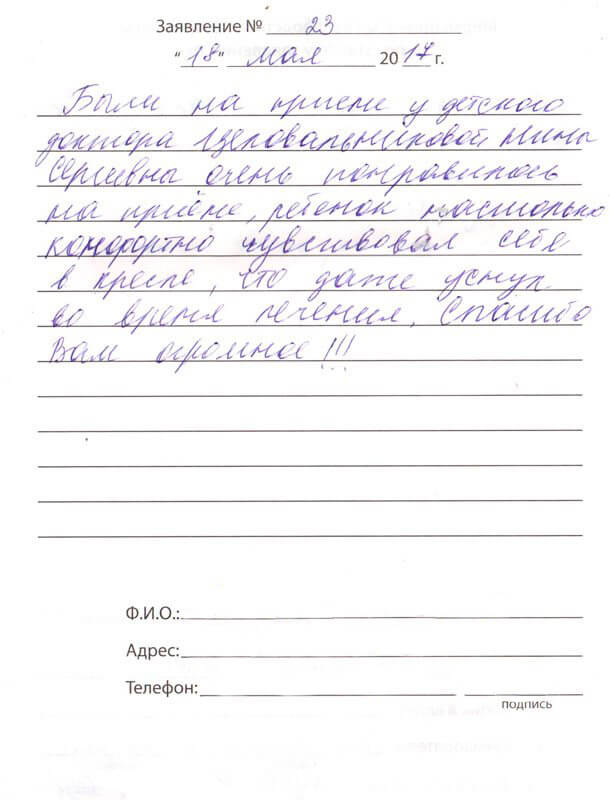 Заявление № 23
"18" Мая 2017 г.
Были на приеме у детского
доктора Целовальниковой Нины
Сергеевны очень понравилось
на приёме, ребенок настолько
комфортно чувствовал себя
в кресле, что даже уснул
во время лечения. Спасибо
Вам огромное!!!
Ф.И.О.:
Адрес:
Телефон:
подпись